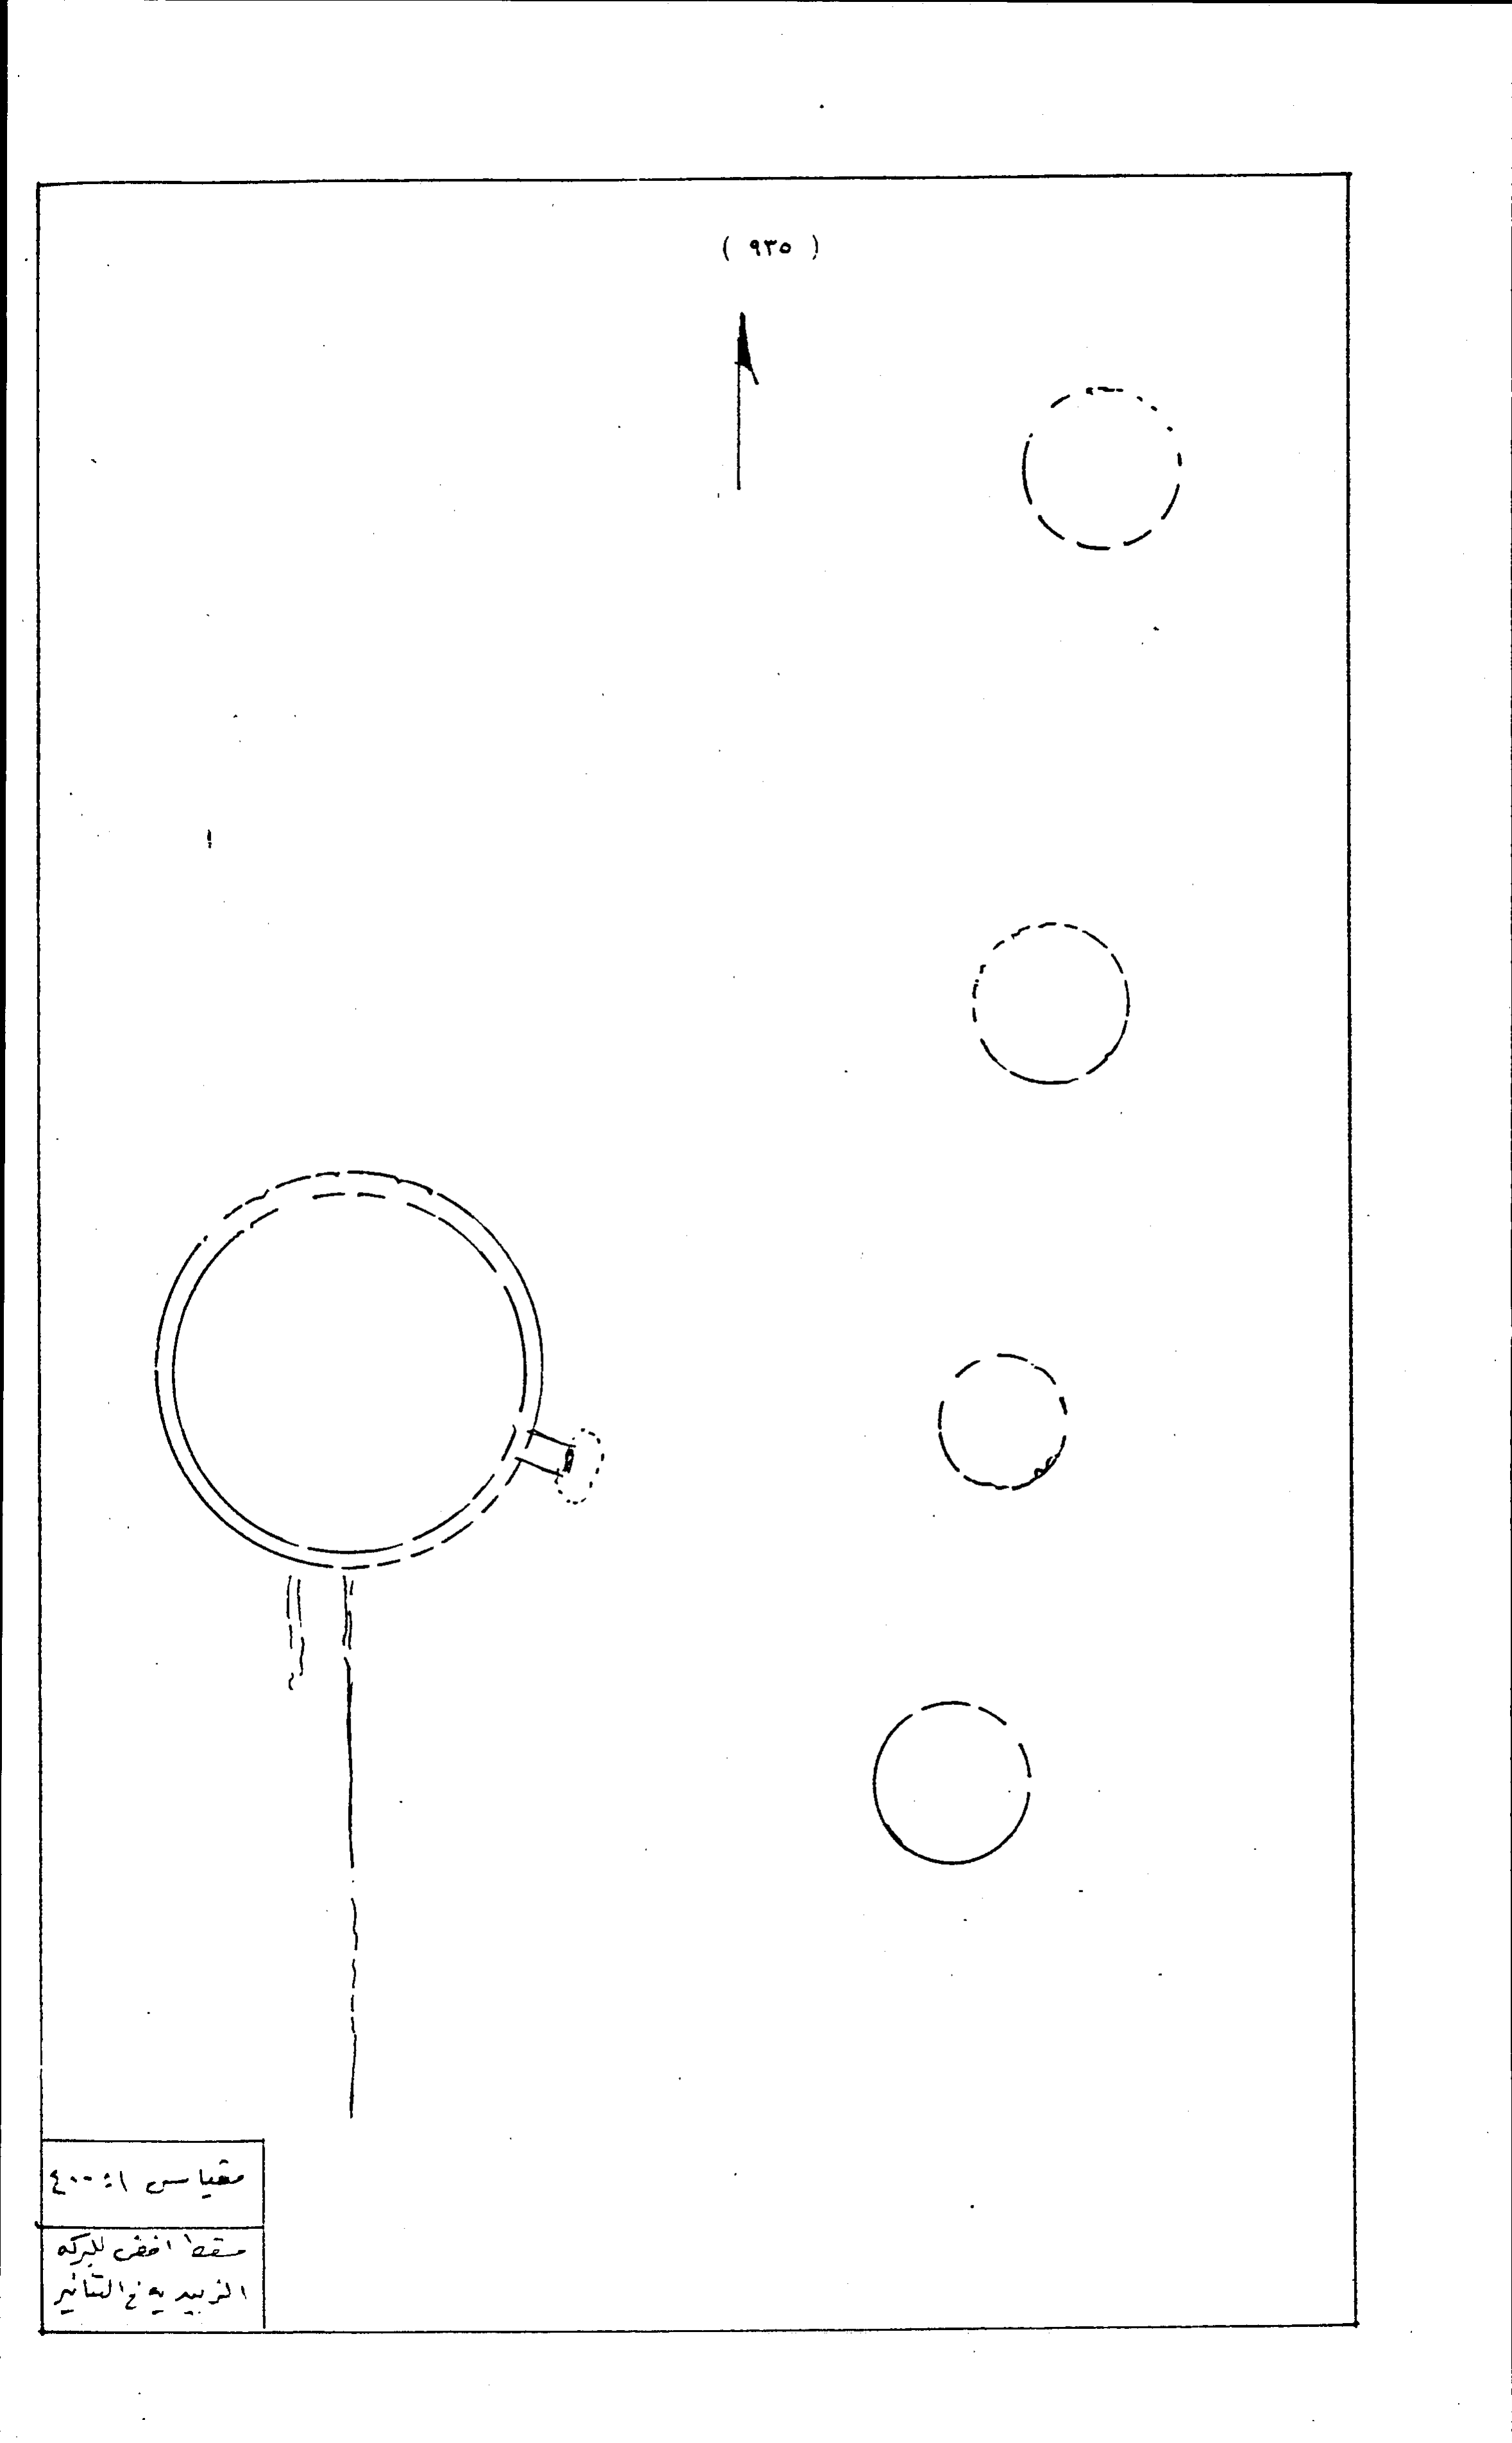 ( ٩٣٥ )
مقياس ١:٤٠٠
مسقط افقى للبركه
الزبيديه في التنانير